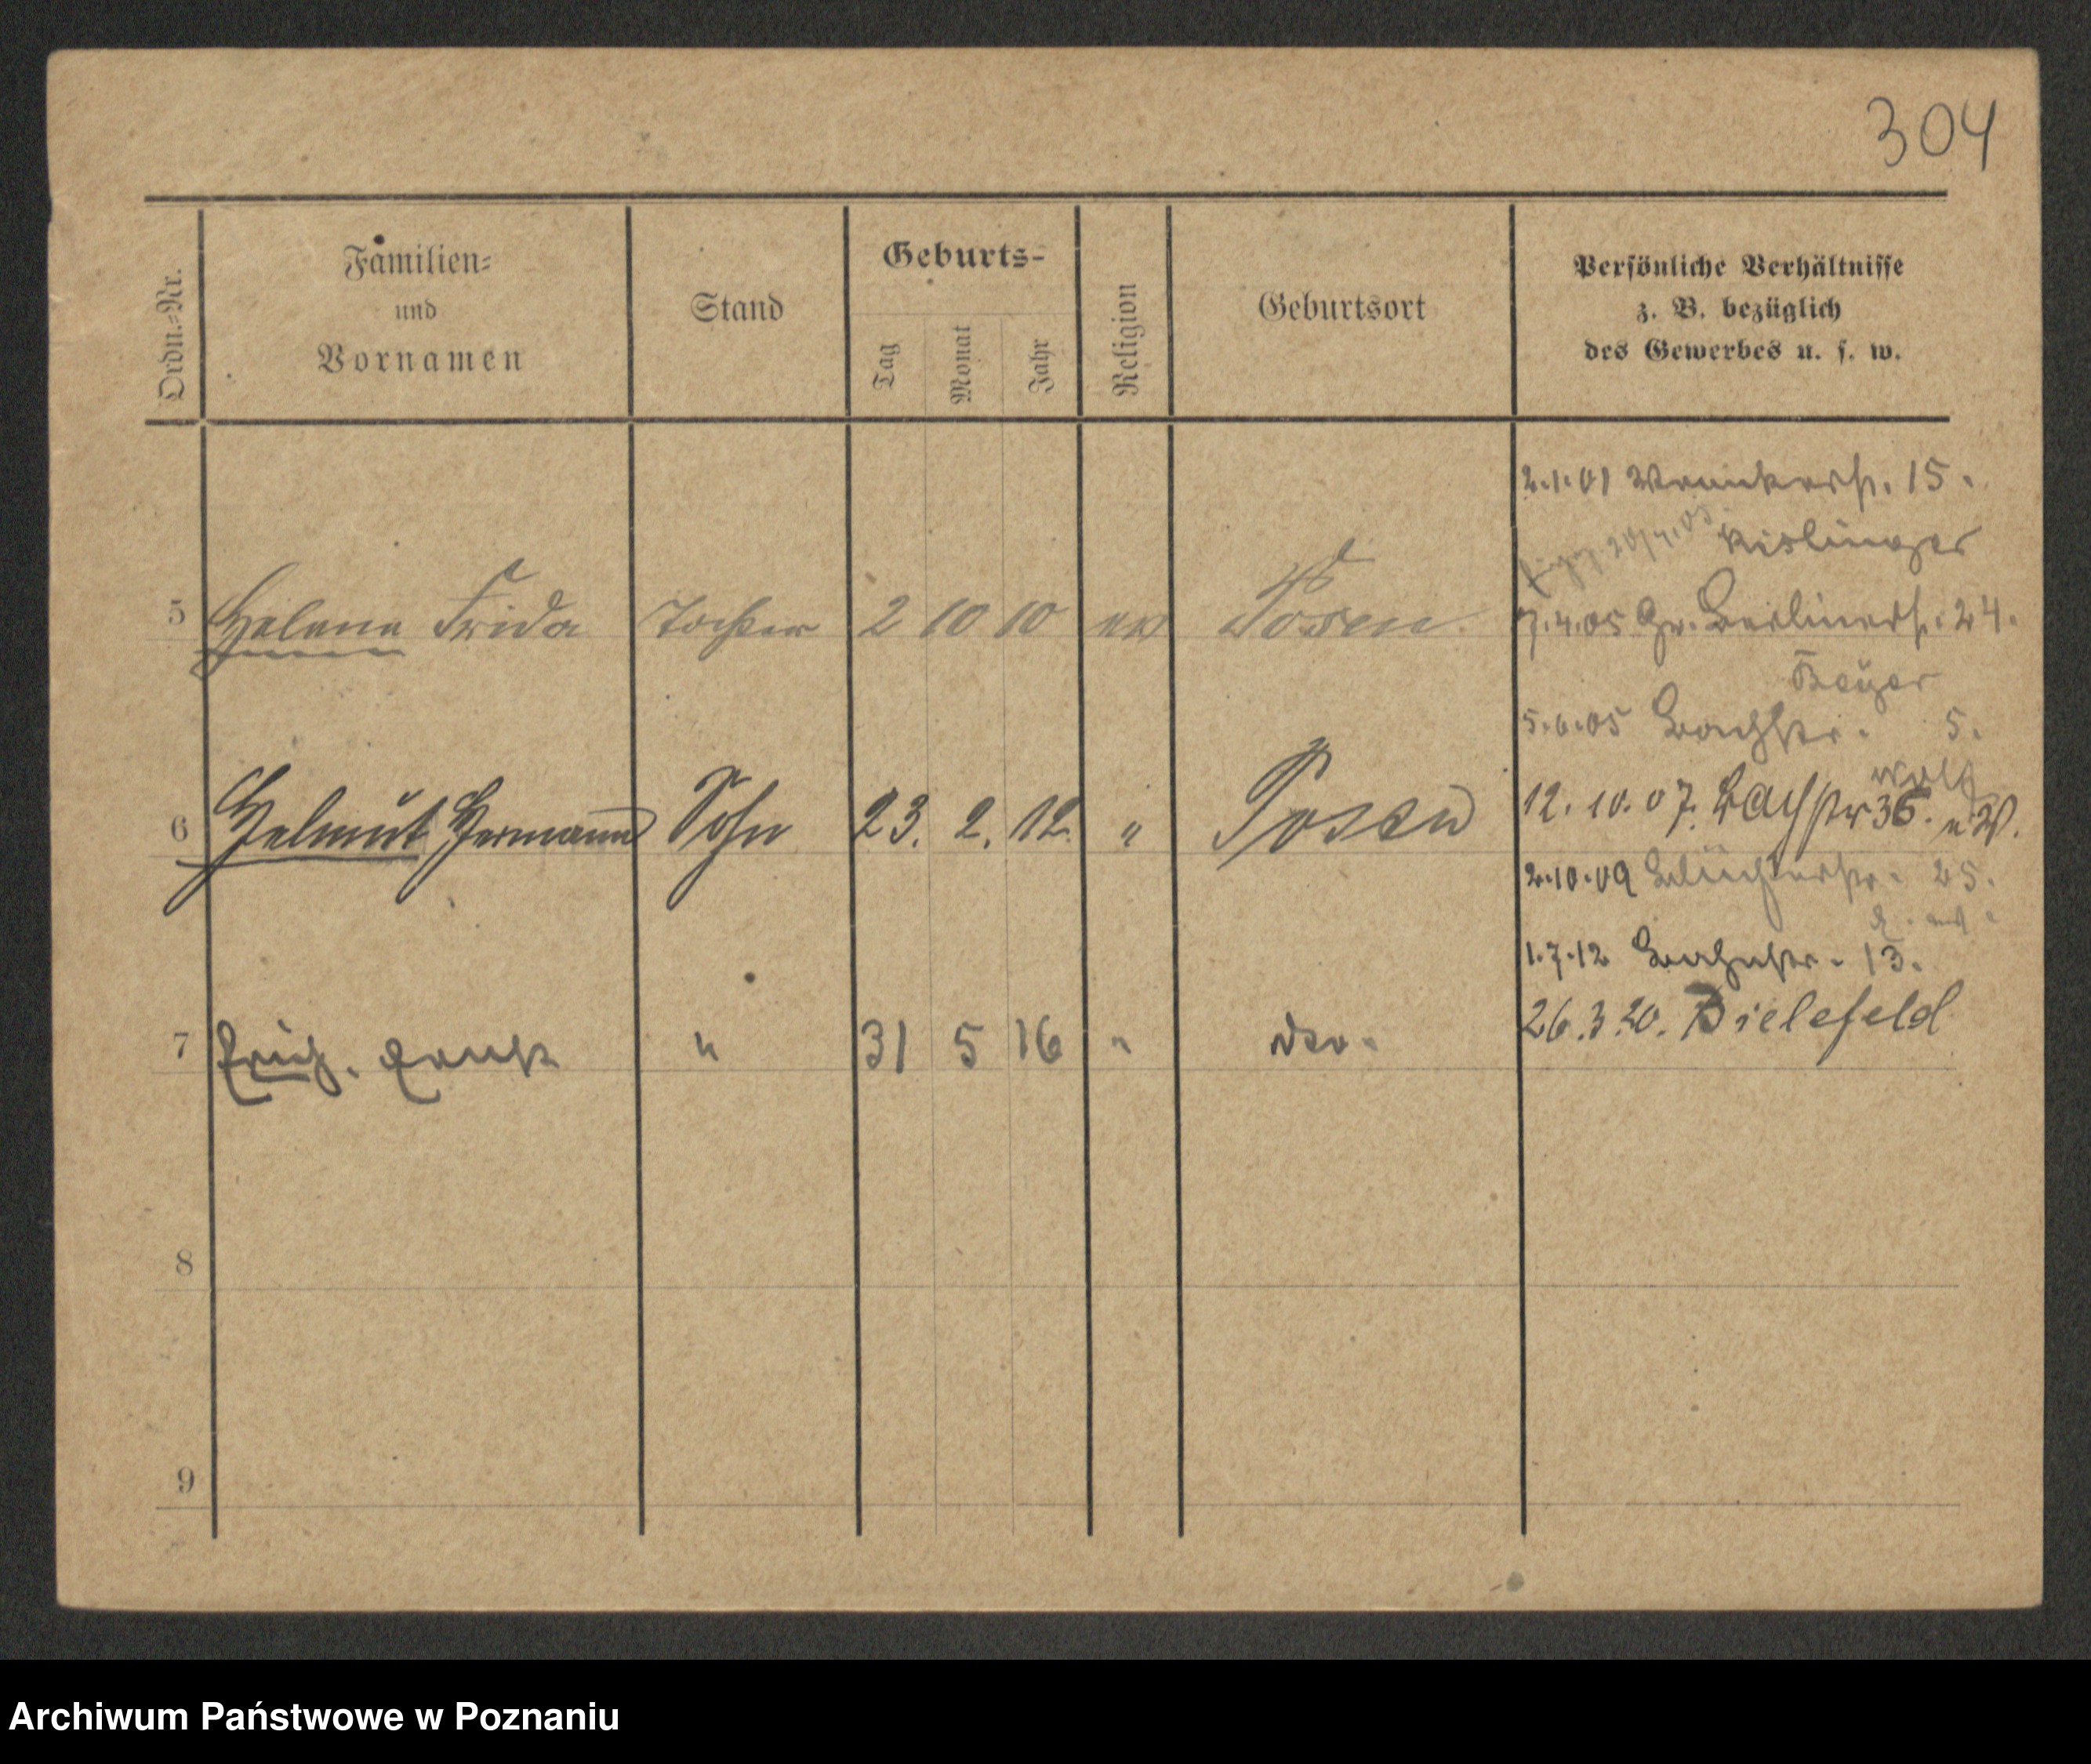 304
Ordn.-Nr.
Familien-
und
Vornamen
Stand
Geburts-
Tag
Monat
Jahr
Religion
Geburtsort
Persönliche Verhältnisse
z. B. bezüglich
des Gewerbes u. s. w.
2.1.01 15.
Kislinger
5 Helene Frida Tochter 2 10 10 ev Posen.
7.4.05 Gr. Berlinerstr. 24.
Beyer
5.6.05 Bachstr. 5.
Wolff
6 Helmut Hermann Sohn 23. 2. 12. " Posen
12. 10. 07. Bachstr 36.
2.10.09 Blücherstr. 25.
1.7.12 13.
7 Erich " 31 5 16 " dto.
26.3.20. Bielefeld
8
9
Archiwum Państwowe w Poznaniu